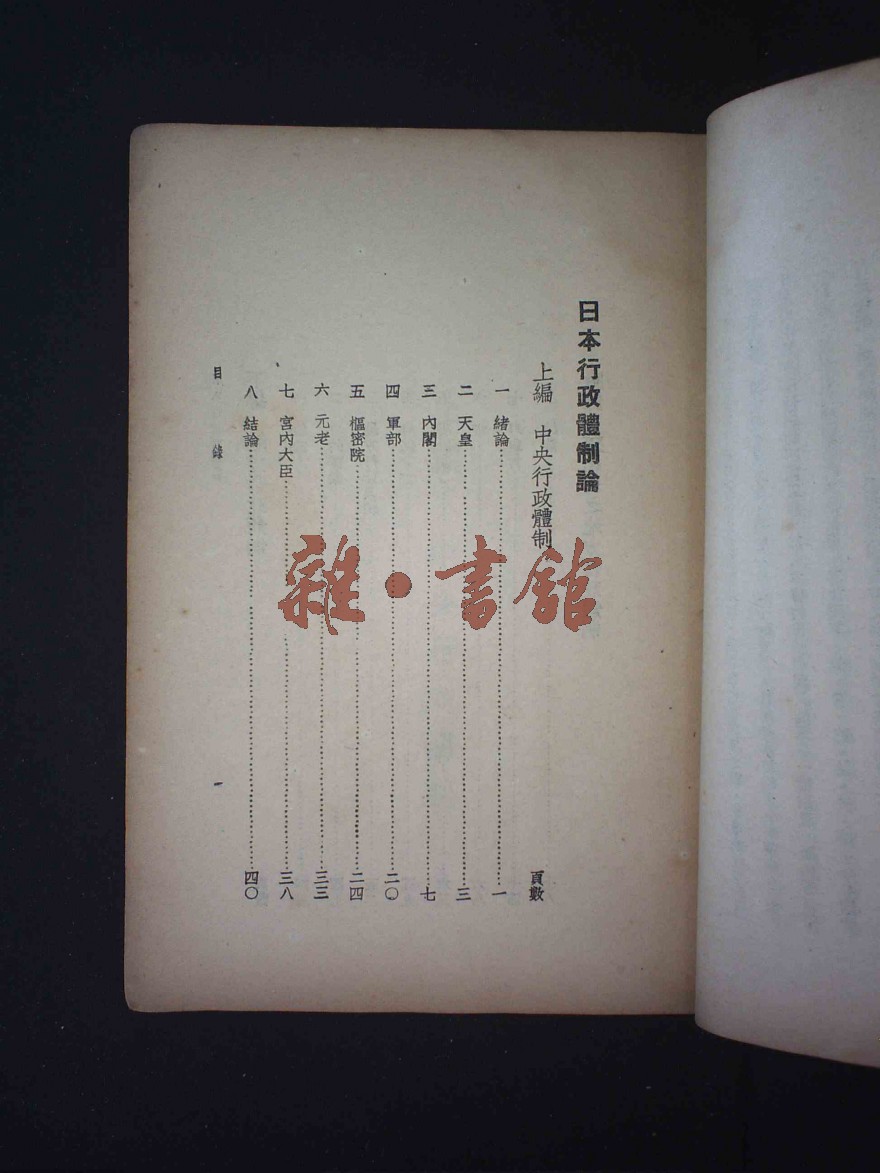 日本行政體制論
上編 中央行政體制
頁數
一 緒論……一
二 天皇……三
三 內閣……七
四 軍部……二〇
五 樞密院……二四
六 元老……三三
七 宮內大臣……三八
八 結論……四〇
目錄
一
雜·書館